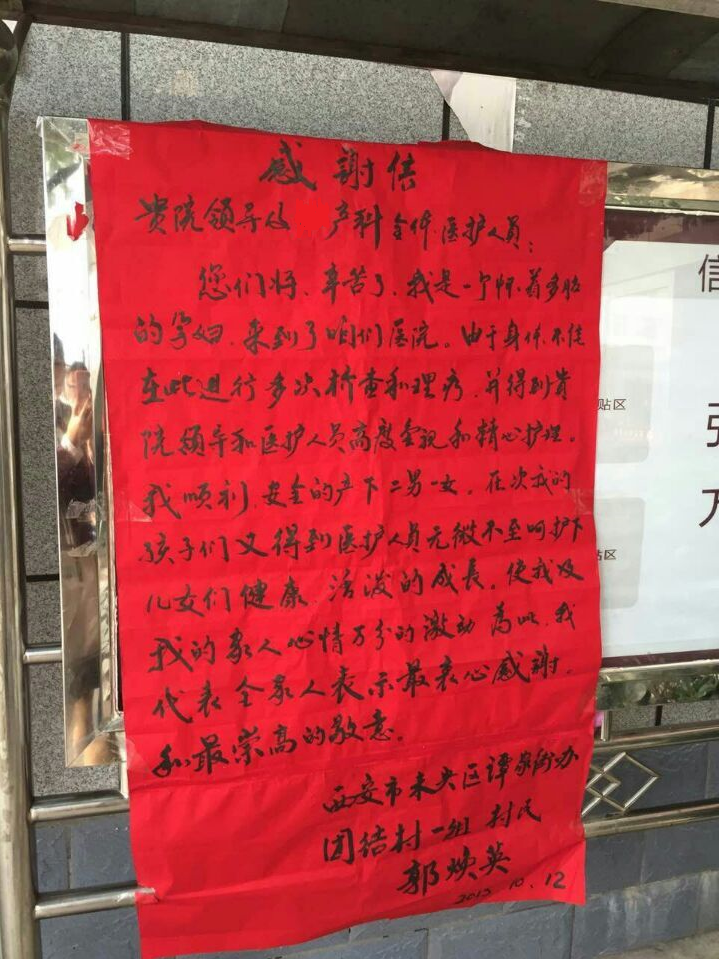 感謝信
贵院领导及 产科全体医护人员：
您们好、辛苦了、我是一个怀着多胎
的孕妇、来到了咱们医院。由于身体不佳
在此进行多次检查和理疗、并得到贵
院领导和医护人员高度重视和精心护理。
我顺利、安全的产下二男一女。在次我的
孩子们又得到医护人员无微不至呵护下
儿女们健康、活泼的成长。使我及
我的家人心情万分的激动 為此、我
代表全家人表示最衷心感謝。
和最崇高的敬意。
西安市未央区谭家街办
团结村一组 村民
郭焕英
10.12
信
贴区
贴区